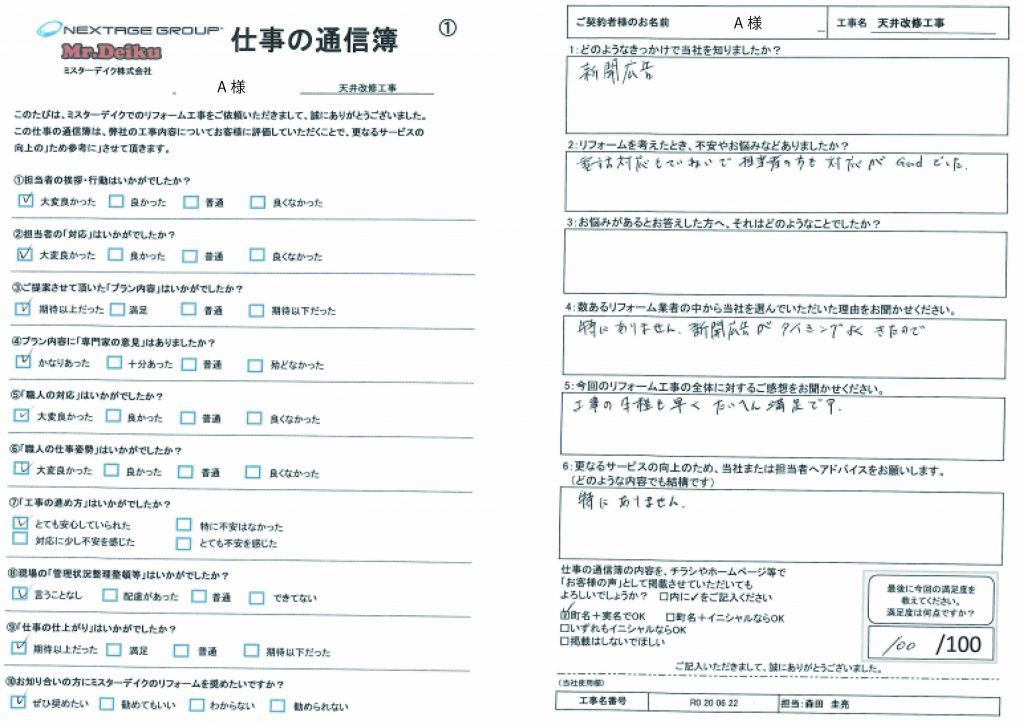 NEXTAGE GROUP
Mr.Deiku
ミスターデイク株式会社
仕事の通信簿
①
A 様
天井改修工事
このたびは、ミスターデイクでのリフォーム工事をご依頼いただきまして、誠にありがとうございました。
この仕事の通信簿は、弊社の工事内容についてお客様に評価していただくことで、更なるサービスの
向上の」ため参考に」させて頂きます。
①担当者の挨拶・行動はいかがでしたか?
☑ 大変良かった □ 良かった □ 普通 □ 良くなかった
②担当者の「対応」はいかがでしたか?
☑ 大変良かった □ 良かった □ 普通 □ 良くなかった
③ご提案させて頂いた「プラン内容」はいかがでしたか?
☑ 期待以上だった □ 満足 □ 普通 □ 期待以下だった
④プラン内容に「専門家の意見」はありましたか?
☑ かなりあった □ 十分あった □ 普通 □ 殆どなかった
⑤「職人の対応」はいかがでしたか?
☑ 大変良かった □ 良かった □ 普通 □ 良くなかった
⑥「職人の仕事姿勢」はいかがでしたか?
☑ 大変良かった □ 良かった □ 普通 □ 良くなかった
⑦「工事の進め方」はいかがでしたか?
☑ とても安心していられた □ 特に不安はなかった
□ 対応に少し不安を感じた □ とても不安を感じた
⑧現場の「管理状況整理整頓等」はいかがでしたか?
☑ 言うことなし □ 配慮があった □ 普通 □ できてない
⑨「仕事の仕上がり」はいかがでしたか?
☑ 期待以上だった □ 満足 □ 普通 □ 期待以下だった
⑩お知り合いの方にミスターデイクのリフォームを奨めたいですか?
☑ ぜひ奨めたい □ 勧めてもいい □ わからない □ 勧められない
ご契約者様のお名前 A 様 工事名 天井改修工事
1:どのようなきっかけで当社を知りましたか?
新聞広告
2:リフォームを考えたとき、不安やお悩みなどありましたか?
電話対応もていねいで担当者の方も対応がGoodでした.
3:お悩みがあるとお答えした方へ、それはどのようなことでしたか?
4:数あるリフォーム業者の中から当社を選んでいただいた理由をお聞かせください。
特にありません、新聞広告がタイミングよくきたので
5:今回のリフォーム工事の全体に対するご感想をお聞かせください。
工事の工程も早くたいへん満足です.
6:更なるサービスの向上のため、当社または担当者へアドバイスをお願いします。
(どのような内容でも結構です)
特にありません.
仕事の通信簿の内容を、チラシやホームページ等で
「お客様の声」として掲載させていただいても
よろしいでしょうか? □内に✓をご記入ください
☑町名+実名でOK □町名+イニシャルならOK
□いずれもイニシャルならOK
□掲載はしないでほしい
最後に今回の満足度を
教えてください。
満足度は何点ですか?
100 /100
ご記入いただきまして、誠にありがとうございました。
(当社使用欄)
工事名番号 R0 20 06 22 担当:森田 圭亮